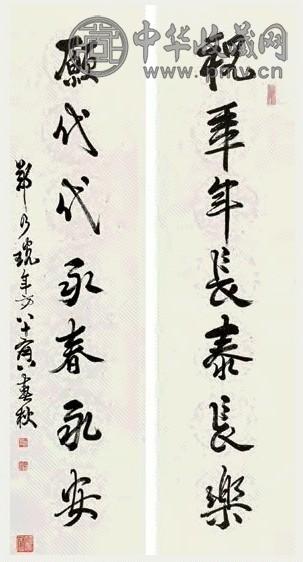 中华收藏网
www.pmv.cn
祝年年長泰長樂
願代代永春永安
鄭乃珖年方八十八春秋